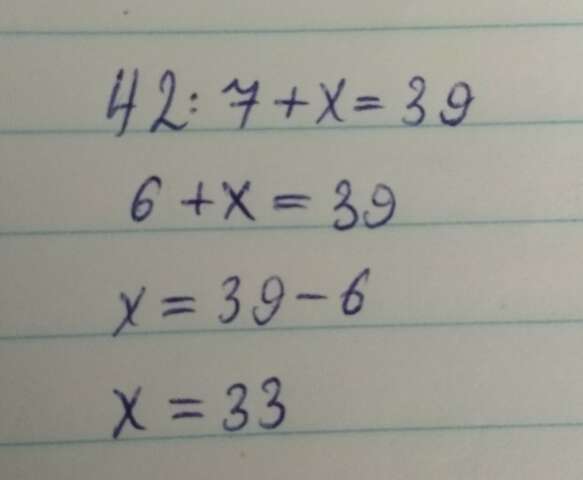 42 : 7 + x = 39
6 + x = 39
x = 39 - 6
x = 33